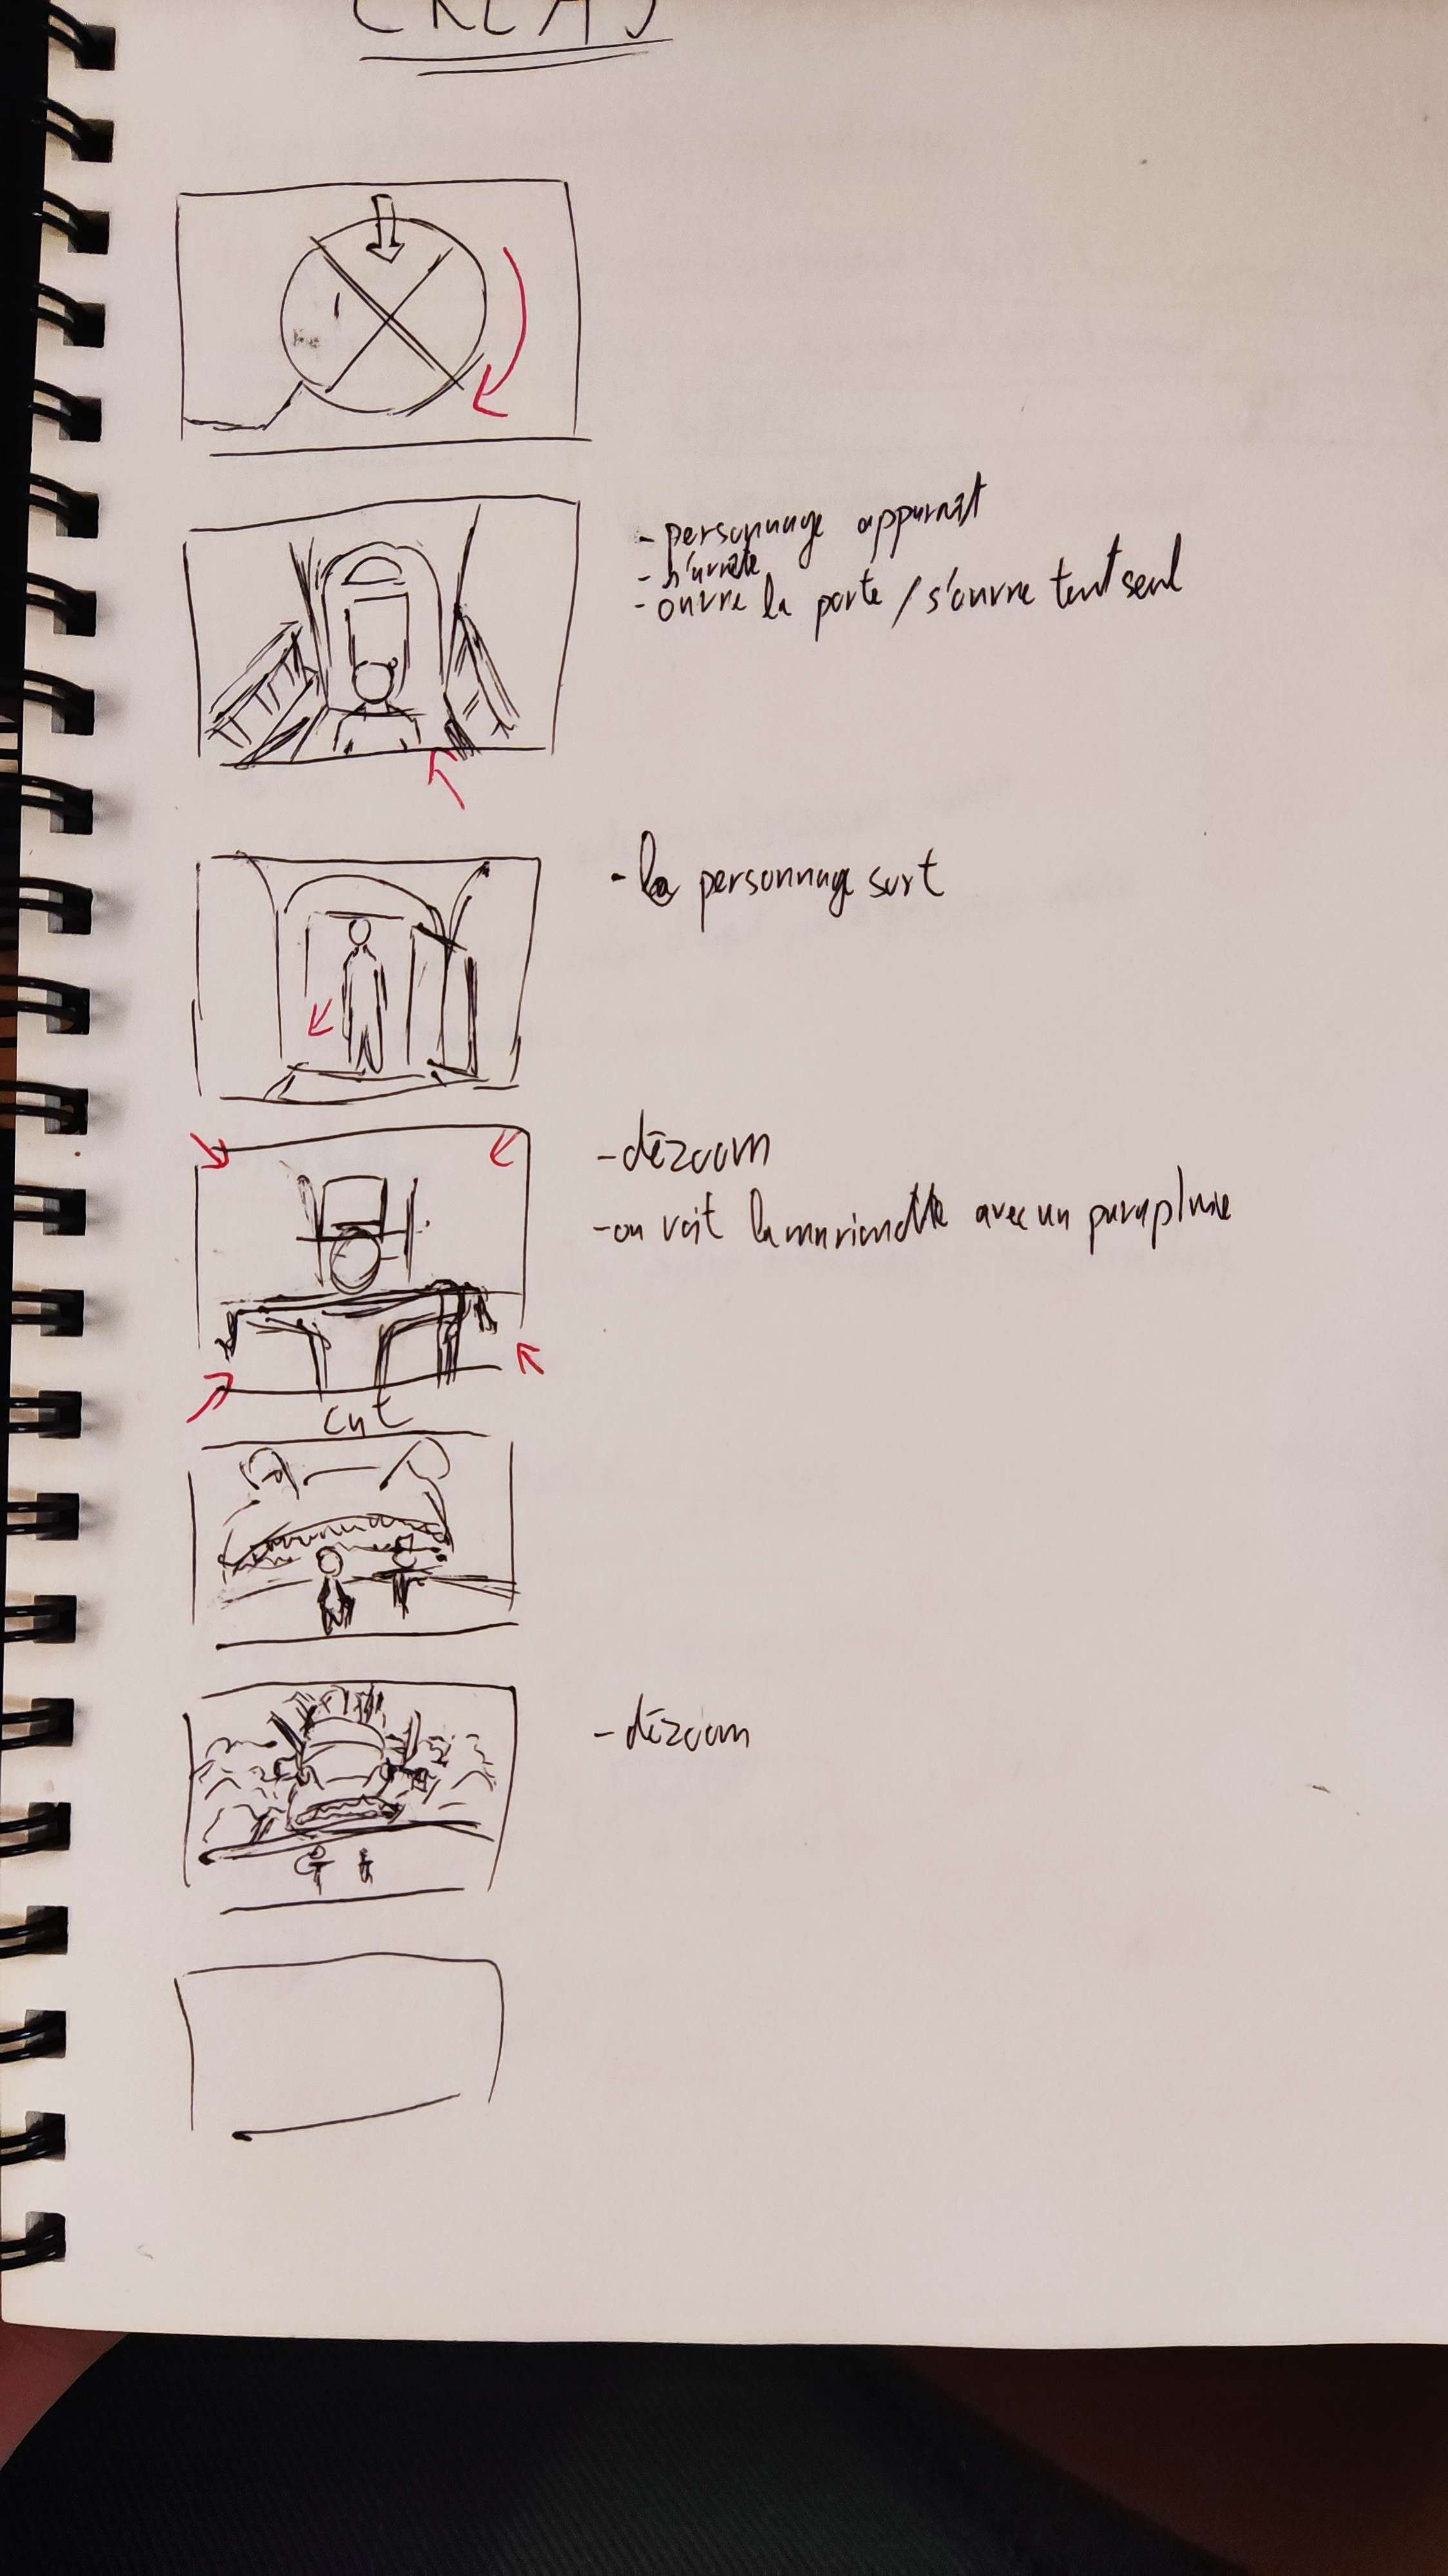 CREAJ
- personnage apparaît
- s'arrête
- ouvre la porte / s'ouvre tout seul
- le personnage sort
- dézoom
- on voit la marionette avec un parapluie
cut
- dézoom